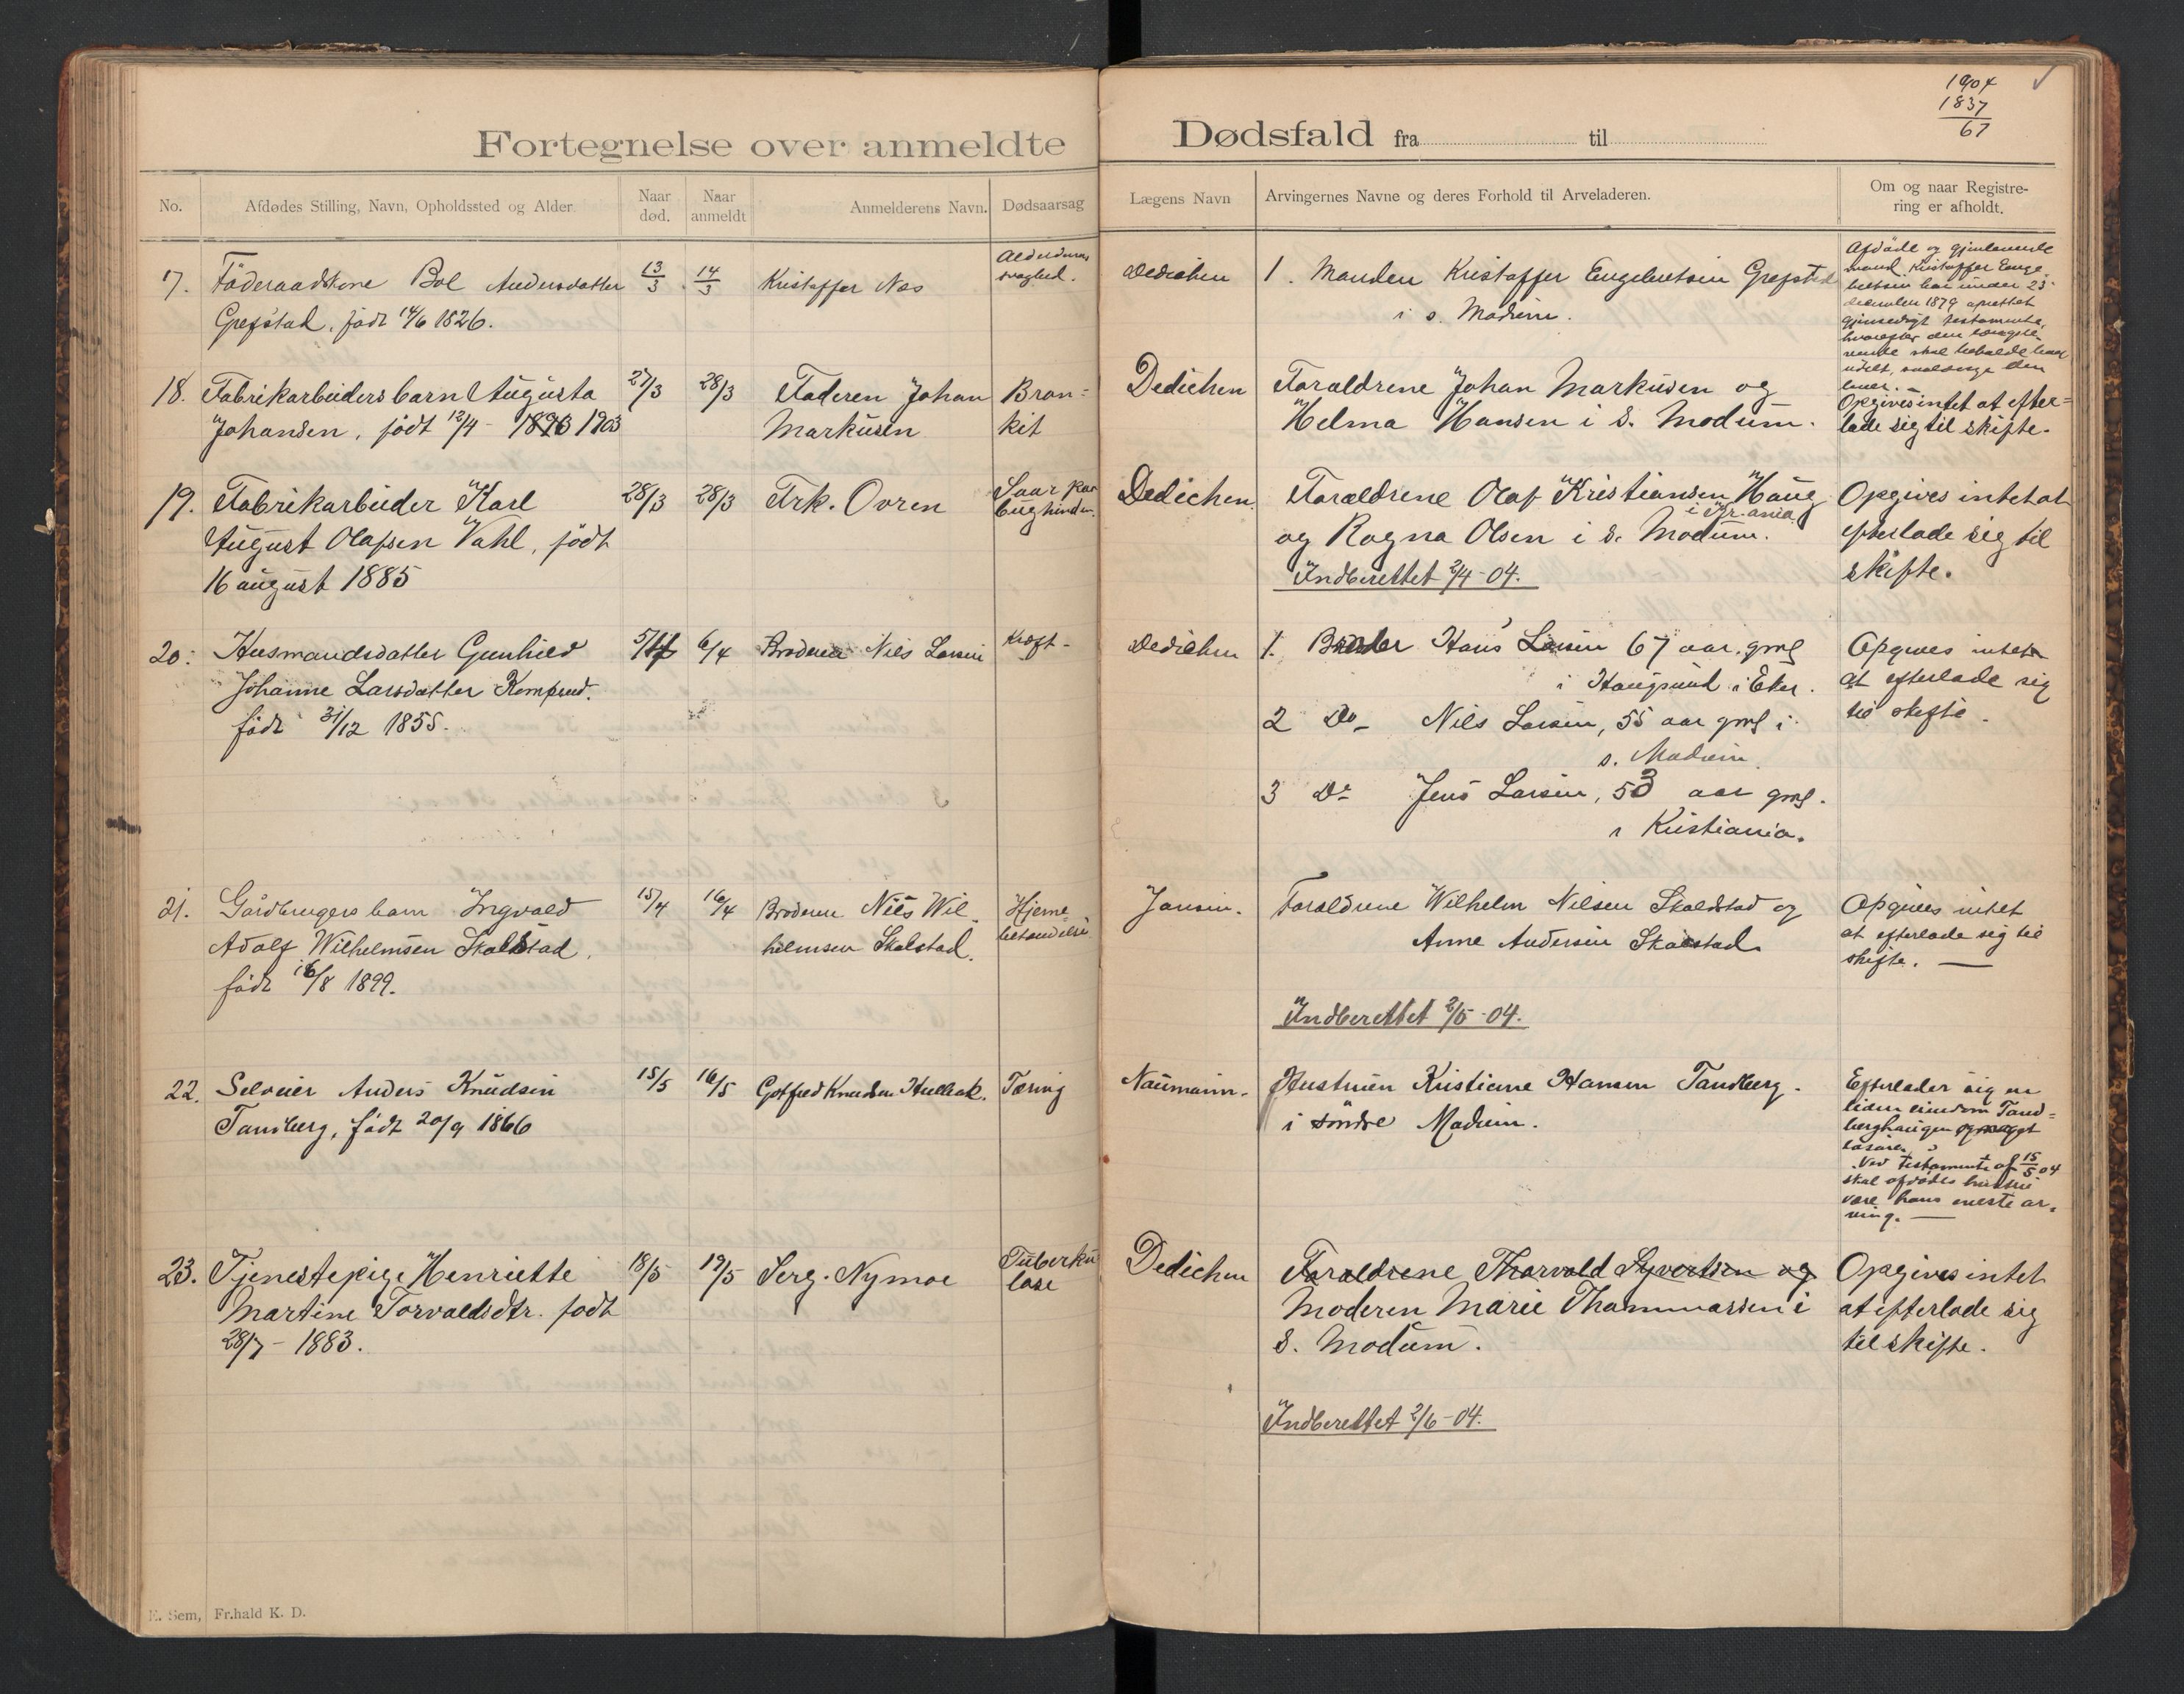 1904
1837
67
Fortegnelse over anmeldte Dødsfald fra til
No.
Afdødes Stilling, Navn, Opholdssted og Alder
Naar død.
Naar anmeldt
Anmelderens Navn.
Dødsaarsag
Lægens Navn
Arvingernes Navne og deres Forhold til Arveladeren.
Om og naar Registre-
ring er afholdt.
17. Föderaadskone Bol Andersdatter 13/3 14/3 Kristoffer Nos Alderdoms
svaghed.
Grefstad, født 14/6 1826.
Dedichen 1. Manden Kristoffer Engebretsen Grefstad
i s. Modum.
Afdöde og gjenlevende
mand Kristoffer Enge-
bretsen har under 23
december 1879 oprettet
gjensidigt testamente,
hvorefter den længstle-
vende skal beholde boet
udelt, saalænge den
lever. —
18. Fabrikarbeiders barn Augusta 27/3 28/3 Faderen Johan Bron-
Johansen, født 12/4 - 1903 Markusen kit
Dedichen Foraldrene Johan Markusen og
Helma Hansen i S. Modum.
Opgives intet at efter-
lade sig til skifte.
19. Fabrikarbeider Karl 28/3 28/3 Frk. Ovren
August Olafsen Vahl, født
16 august 1885
Dedichen. Foraeldrene Olaf Kristiansen Haug
i Kr.ania
og Ragna Olsen i S. Modum.
Indberettet 2/4-04.
Opgives intet at
efterlade sig til
skifte.
20. Husmandsdatter Gunhild 5/4 6/4 Broderen Nils Larsen Kræft -
Johanne Larsdatter Komprud.
födt 31/12 1855.
Dedichen 1. Broder Hans Larsen 67 aar. gml
i Haugsund i Eker.
2 Do - Nils Larsen, 55 aar gml i
s. Modum.
3 Do - Jens Larsen, 53 aar gml.
i Kristiania.
Opgives intet
at efterlade sig
til skifte.
21. Gårdbrugers barn Ingvald 15/4 16/4 Broderen Nils Wil- Hjerne-
Adolf Wilhelmsen Skalstad, helmsen Skalstad. betændelse
födt 16/8 1899.
Jansen. Foraldrene Wilhelm Nilsen Skalstad og
Anne Andersen Skalstad
Indberettet 2/5-04.
Opgives intet
at efterlade sig til
skifte. —
22. Selveier Anders Knudsen 15/5 16/5 Gotfred Knudsen Hullak. Tæring
Tandberg, född 20/9 1866
Naumann. Hustruen Kristiane Hansen Tandberg.
i søndre Modum.
Efterlader sig en
liden eiendom Tand-
berghaugen og noget
løsøre.
Ved testamente af 15/5 04
skal afdödes hustru
være hans eneste ar-
ving. —
23. Tjenestepige Henriette 18/5 19/5 Serg. Nymoe Tuberku
Martine Torvaldsdtr. født lose
28/7 - 1883.
Dedichen Foraldrene Thorvald Syvertsen og
Moderen Marie Thommassen i
S. Modum.
Indberettet 2/6-04.
Opgives intet
at efterlade sig
til skifte.
E. Sem, Fr.hald K. D.